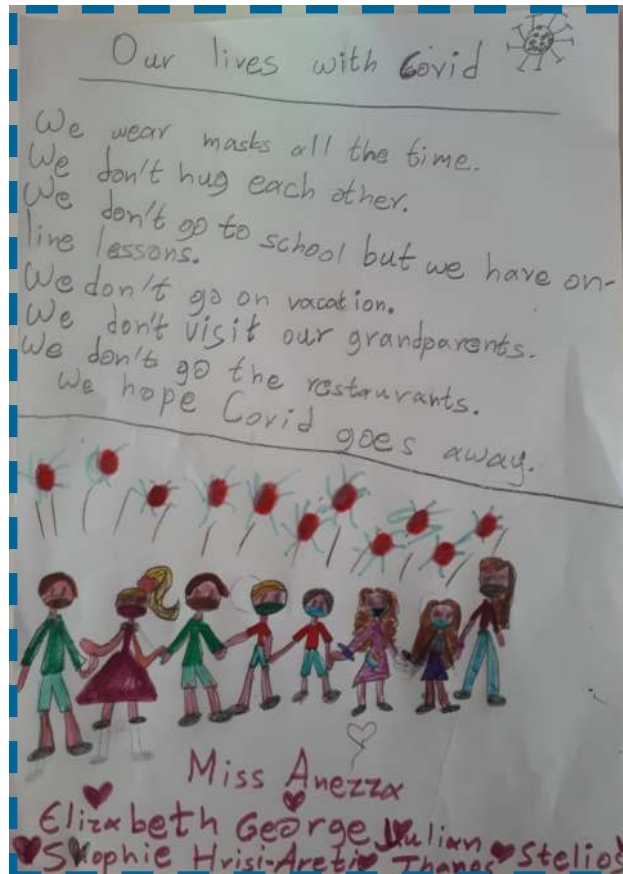 Our lives with Covid
We wear masks all the time.
We don't hug each other.
We don't go to school but we have on-
line lessons.
We don't go on vacation.
We don't visit our grandparents.
We don't go the restaurants.
We hope Covid goes away.
Miss Anezza
Elizabeth George Julian
Sophie Hrisi-Areti Thanos Stelios